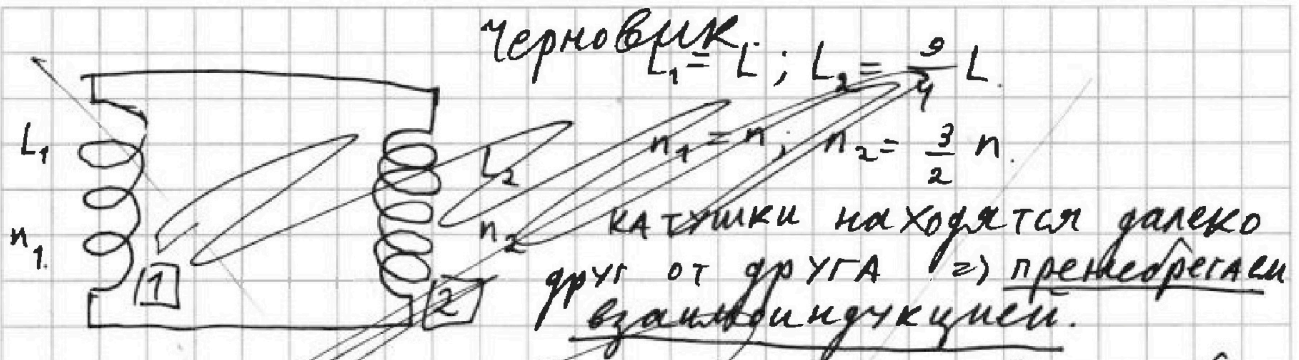 Черновик.
L₁ = L ; L₂ = 9/4 L.
L₁
L₂
n₁ = n; n₂ = 3/2 n.
n₁
n₂
катушки находятся далеко
1
друг от друга => пренебрегаем
2
взаимоиндукцией.